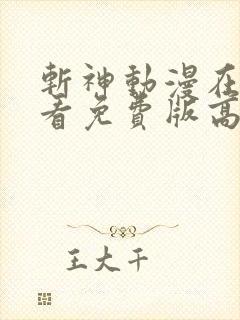 斬神動漫在
看免費版高
王大干